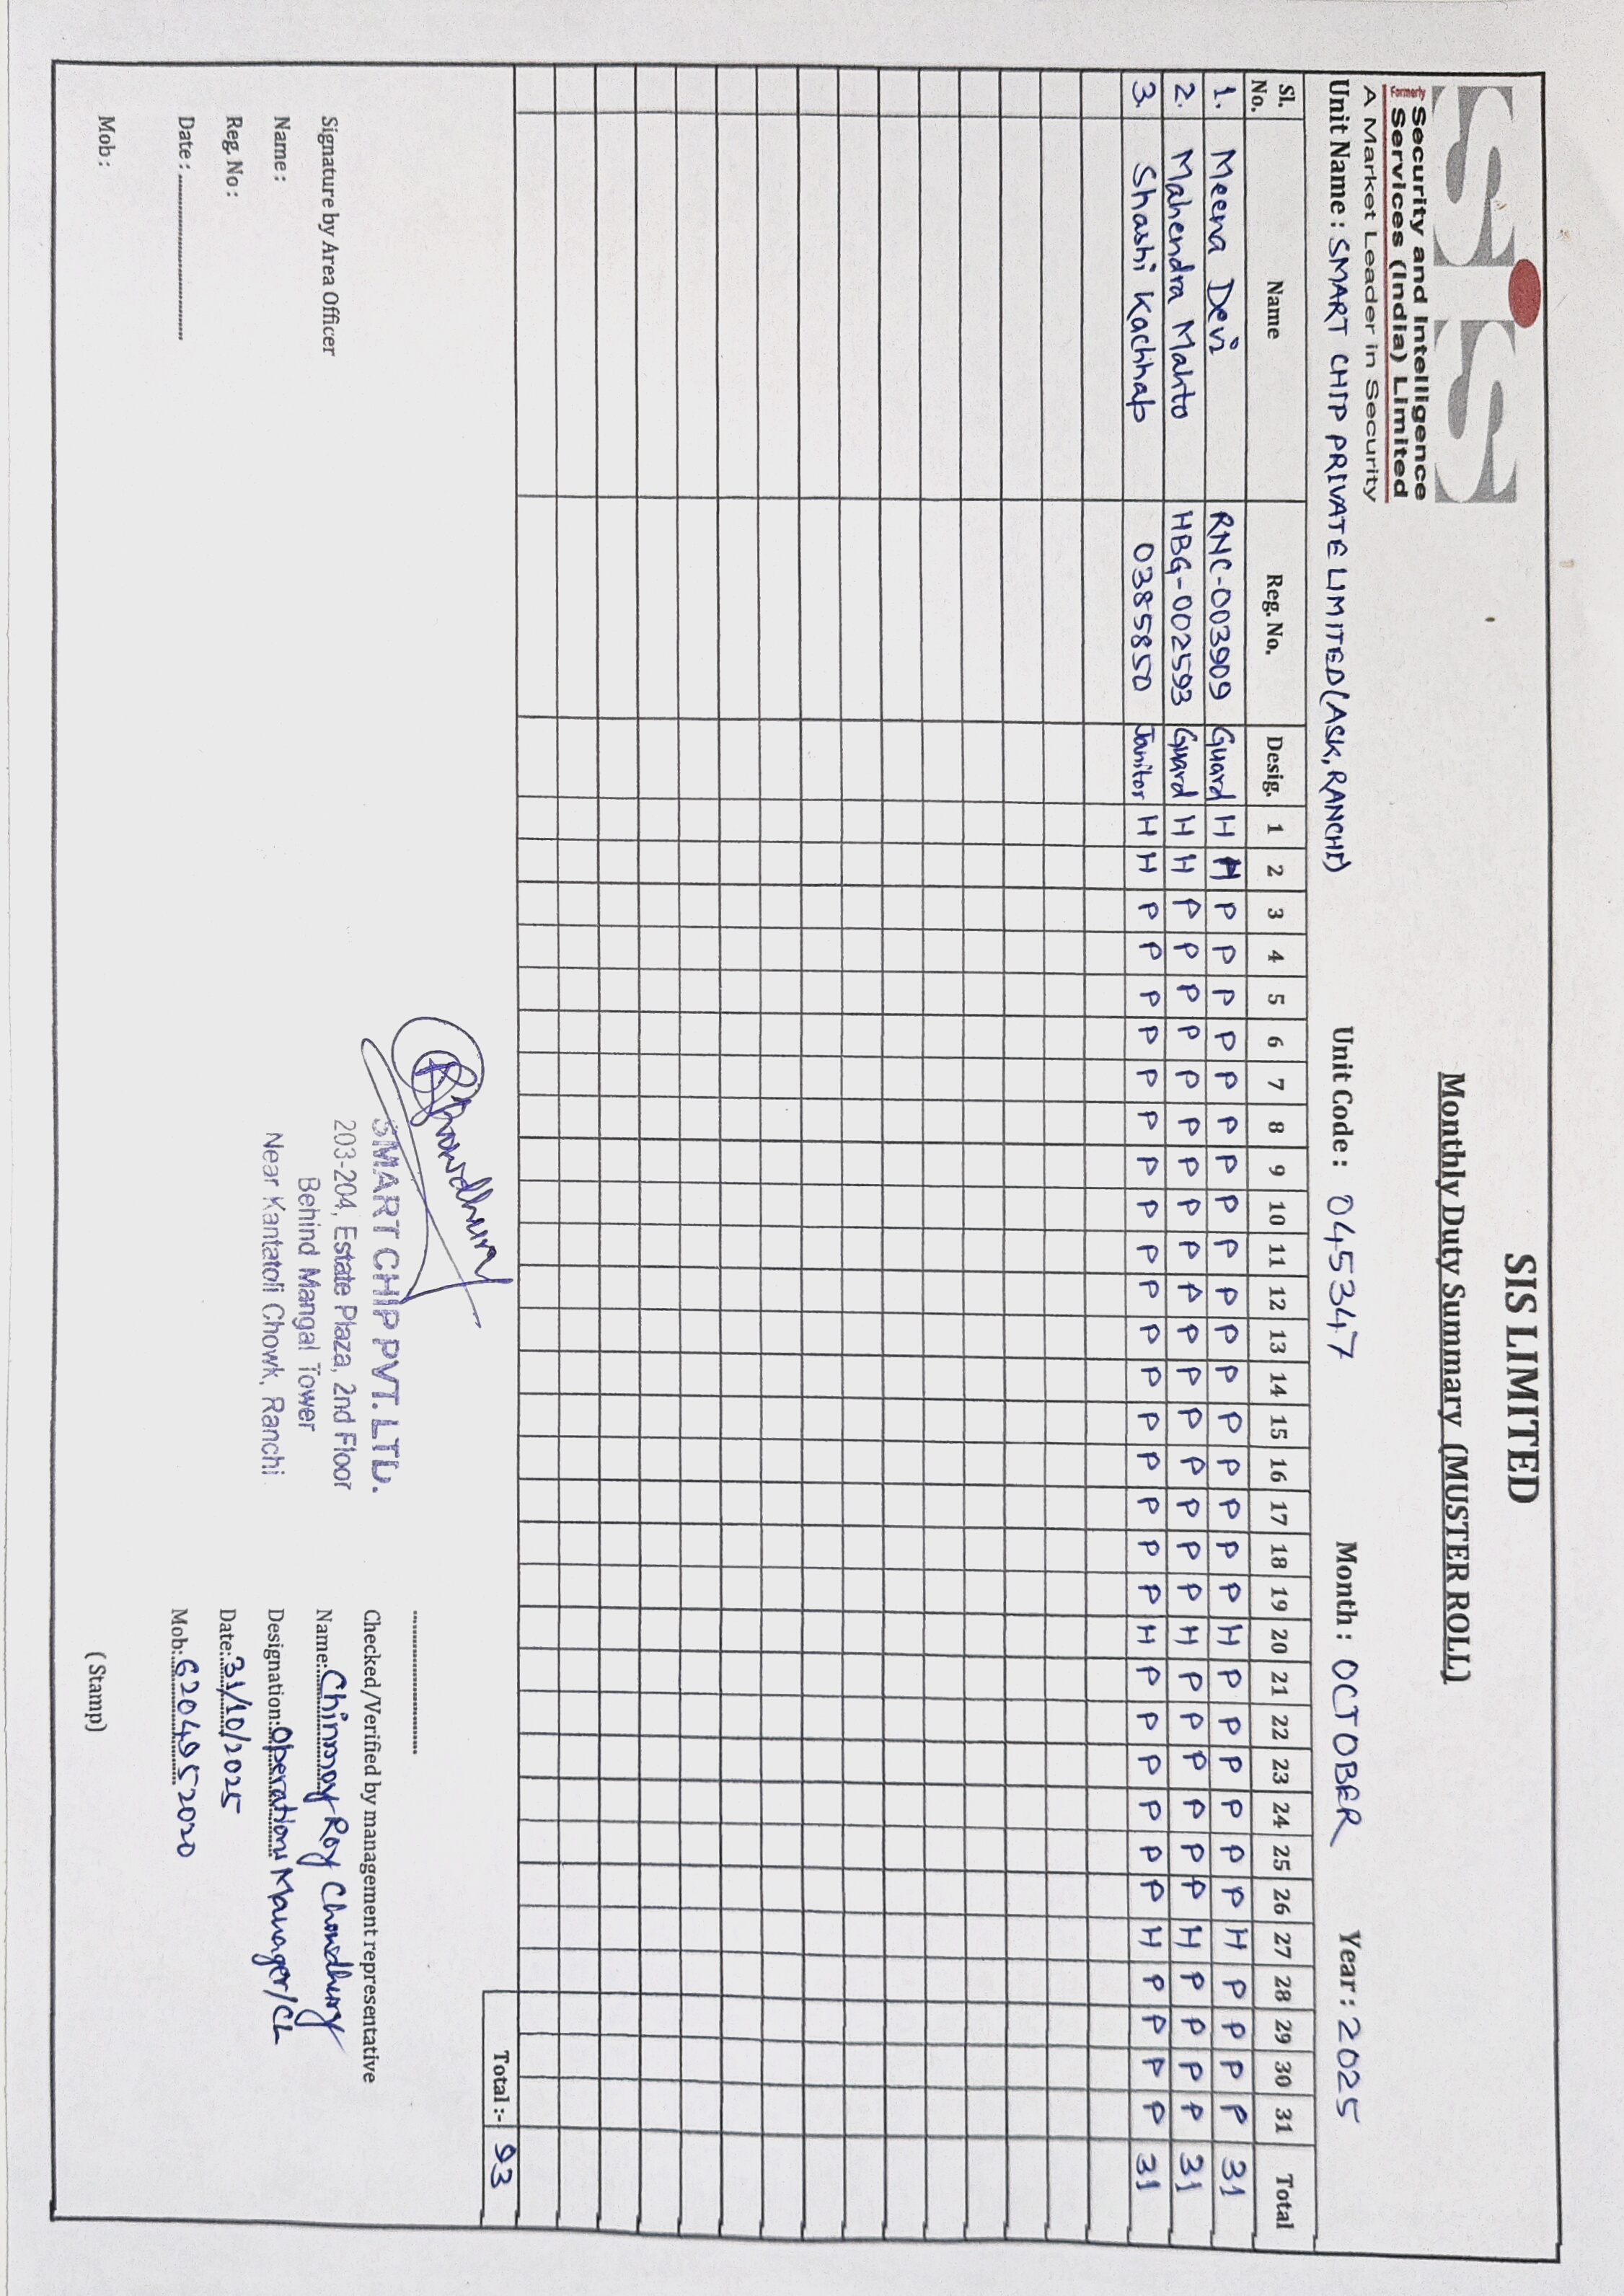 SIS
Formerly Security and Intelligence
Services (India) Limited
A Market Leader in Security
SIS LIMITED
Monthly Duty Summary (MUSTER ROLL)
Unit Name : SMART CHIP PRIVATE LIMITED (ASK, RANCHI) Unit Code : 045347 Month : OCTOBER Year : 2025
Sl. No. Name Reg. No. Desig. 1 2 3 4 5 6 7 8 9 10 11 12 13 14 15 16 17 18 19 20 21 22 23 24 25 26 27 28 29 30 31 Total
1. Meena Devi RNC-003909 Guard H H P P P P P P P P P P P P P P P P P H P P P P P P H P P P P 31
2. Mahendra Mahto HBG-002593 Guard H H P P P P P P P P P P P P P P P P P H P P P P P P H P P P P 31
3. Shashi Kachhap 0385850 Janitor H H P P P P P P P P P P P P P P P P P H P P P P P P H P P P P 31
Total :- 93
Chowdhury
SMART CHIP PVT. LTD.
203-204, Estate Plaza, 2nd Floor
Behind Mangal Tower
Near Kantatoli Chowk, Ranchi
Signature by Area Officer
Name :
Reg. No :
Date : ....................
Mob :
Checked/Verified by management representative
Name: Chinmoy Roy Chowdhury
Designation: Operations Manager/CL
Date: 31/10/2025
Mob: 6204052020
( Stamp)